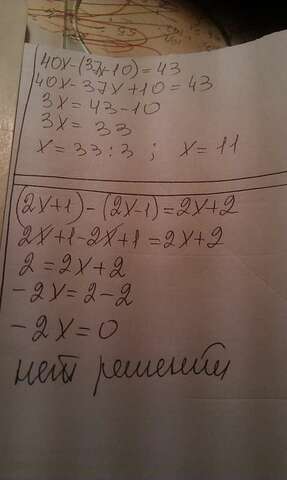 40x-(37x-10)=43
40x-37x+10=43
3x=43-10
3x=33
x=33:3; x=11
(2x+1)-(2x-1)=2x+2
2x+1-2x+1=2x+2
2=2x+2
-2x=2-2
-2x=0
нет решений